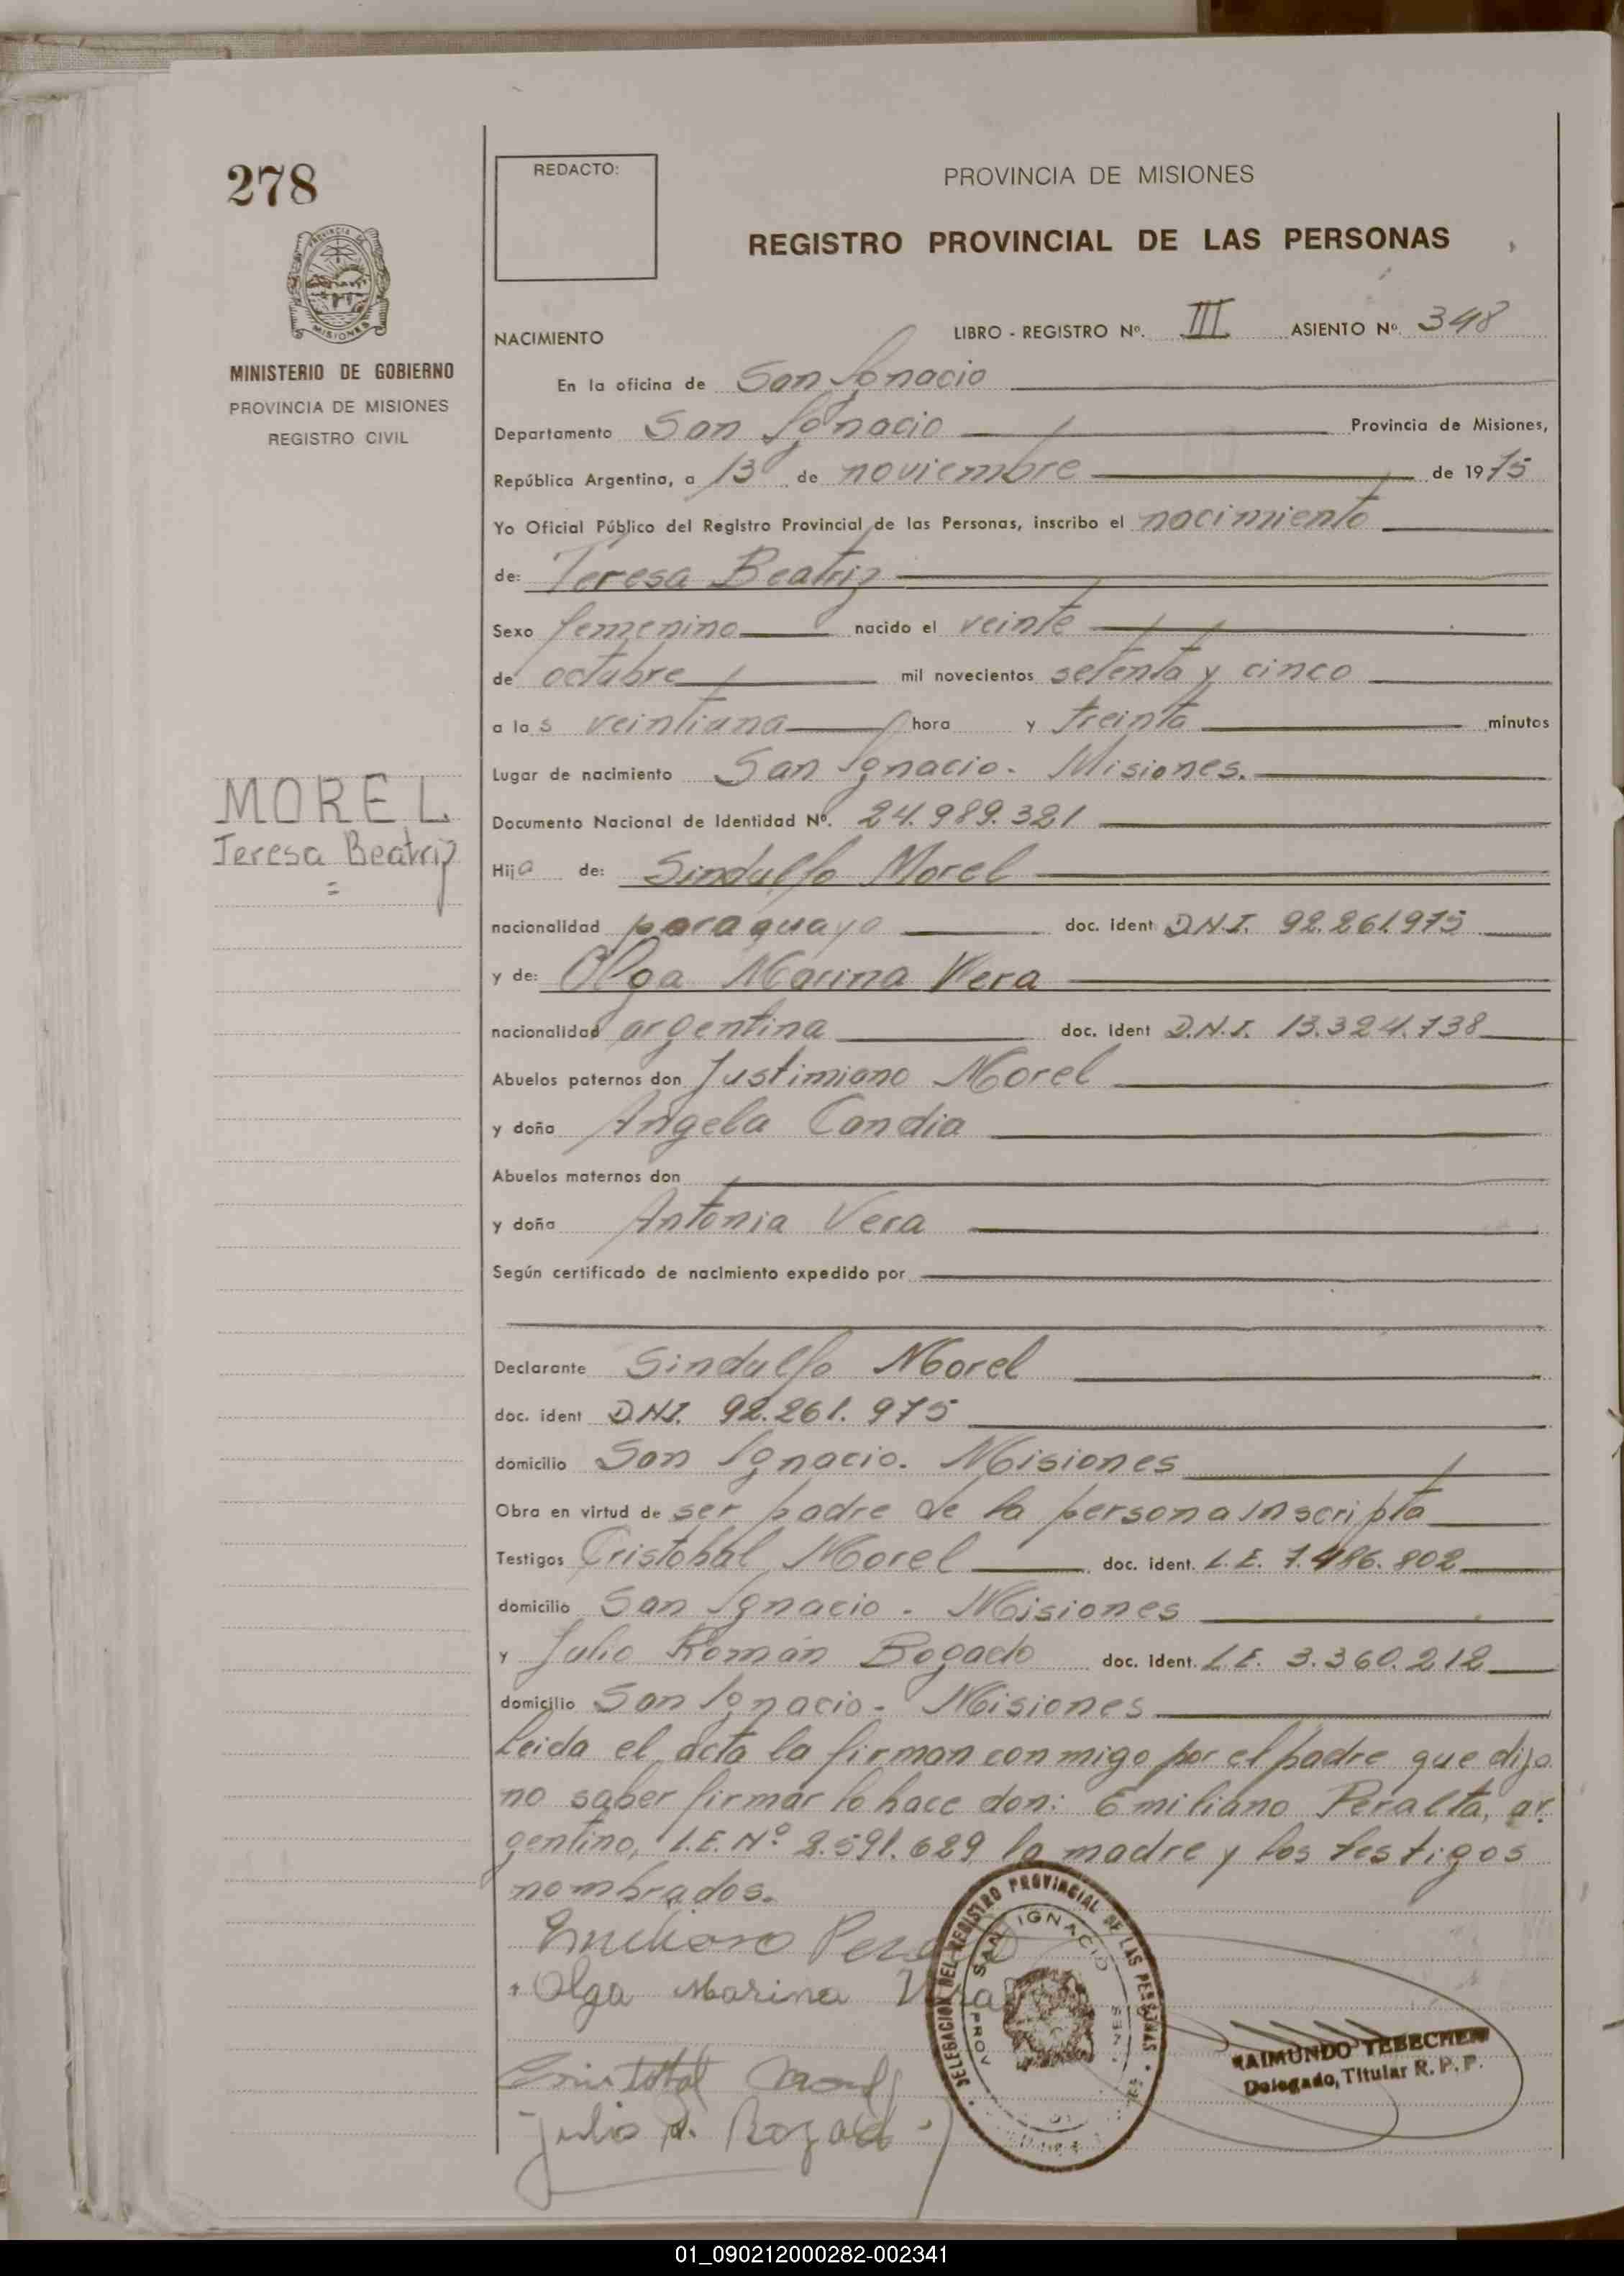 278
REDACTO:
PROVINCIA DE MISIONES
REGISTRO PROVINCIAL DE LAS PERSONAS
PROVINCIA DE
MISIONES
MINISTERIO DE GOBIERNO
PROVINCIA DE MISIONES
REGISTRO CIVIL
NACIMIENTO LIBRO - REGISTRO Nº. III ASIENTO Nº. 348
En la oficina de San Ignacio
Departamento San Ignacio Provincia de Misiones,
República Argentina, a 13 de noviembre de 1975
Yo Oficial Público del Registro Provincial de las Personas, inscribo el nacimiento
de: Teresa Beatriz
Sexo femenino nacido el veinte
de octubre mil novecientos setenta y cinco
a las veintiuna hora y treinta minutos
Lugar de nacimiento San Ignacio - Misiones.
MOREL
Teresa Beatriz
=
Documento Nacional de Identidad Nº. 24.989.321
Hija de: Sindulfo Morel
nacionalidad paraguaya doc. ident D.N.I. 92.261.975
y de: Olga Marina Vera
nacionalidad argentina doc. ident D.N.I. 13.324.738
Abuelos paternos don Justimiano Morel
y doña Angela Candia
Abuelos maternos don
y doña Antonia Vera
Según certificado de nacimiento expedido por
Declarante Sindulfo Morel
doc. ident D.N.I. 92.261.975
domicilio San Ignacio. Misiones
Obra en virtud de ser padre de la persona inscripta
Testigos Cristobal Morel doc. ident. L.E. 7.486.802
domicilio San Ignacio - Misiones
y Julio Román Bogado doc. ident. L.E. 3.360.212
domicilio San Ignacio - Misiones
Leida el acta la firman conmigo por el padre que dijo
no saber firmar lo hace don: Emiliano Peralta, ar
gentino, L.E. Nº 2.591.629 la madre y los testigos
nombrados.
Emiliano
Olga Marina Vera
Cristobal Morel
Julio R. Bogado
DELEGACION DEL REGISTRO PROVINCIAL DE LAS PERSONAS
SAN IGNACIO
RAIMUNDO TEBECHERI
Delegado, Titular R. P. P.
01_090212000282-002341